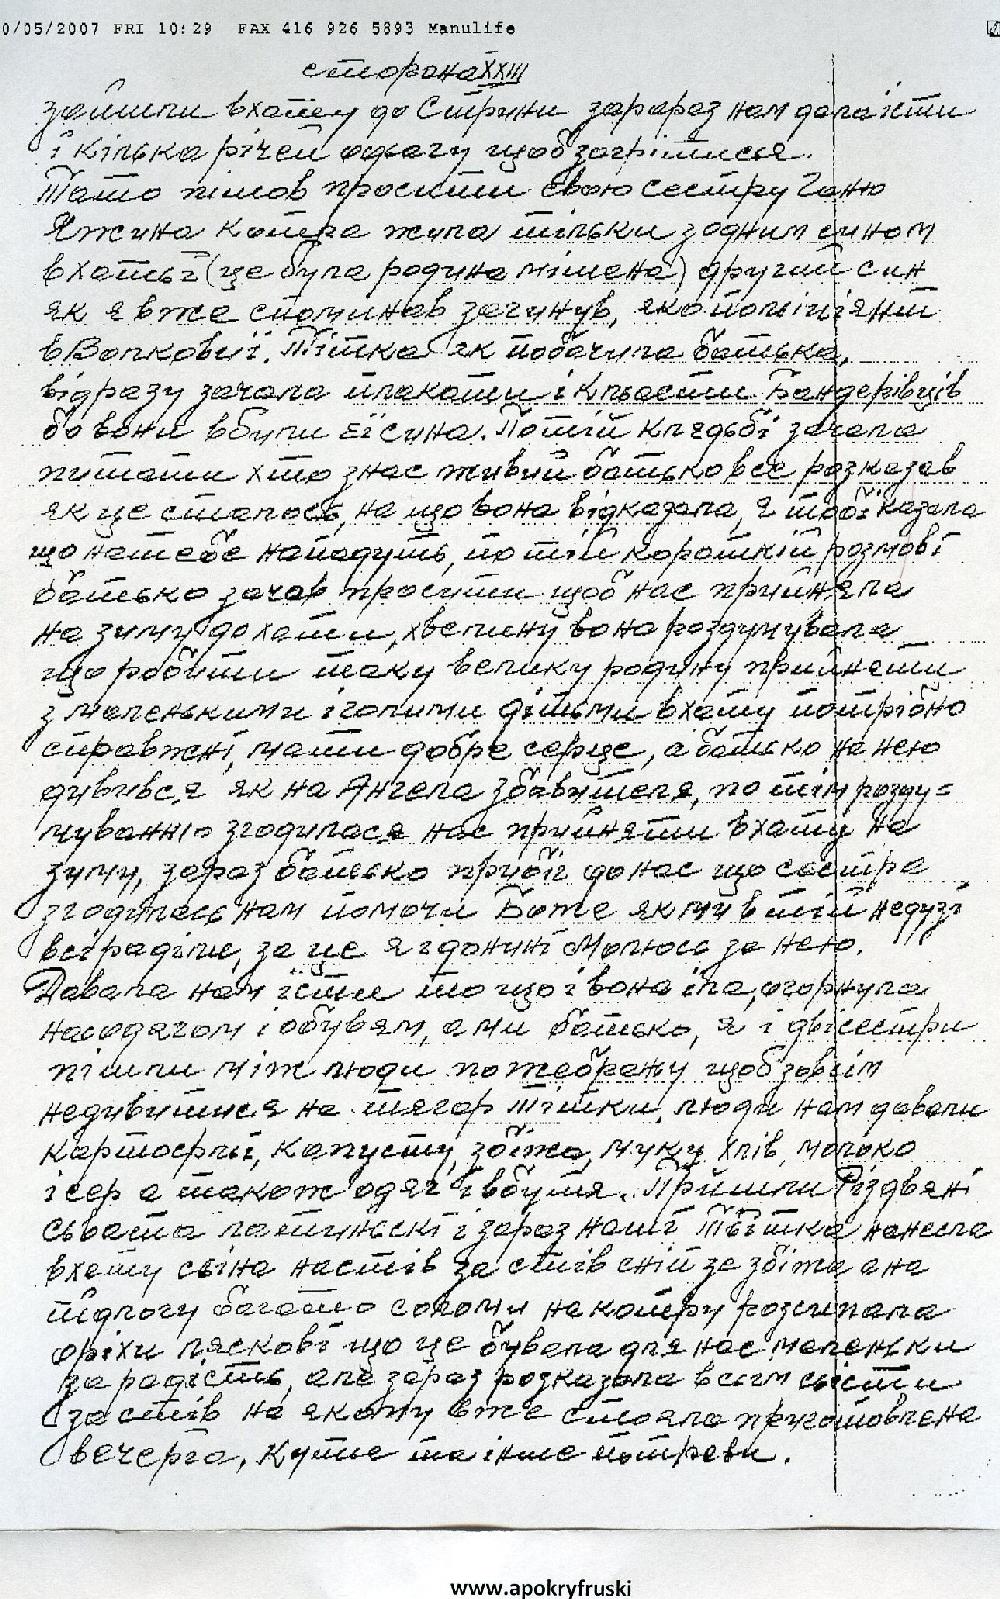 0/05/2007 FRI 10:29 FAX 416 926 5893 Manulife
сторона XXIII
зайшли в хату до Стрини зарараз нам дала їсти
і кілька річей одягу щоб загрітися.
Тато пішов просити свою сестру Ганю
Яжина котра жила тільки з одним сином
в хатьі (це була родина мішена) другий син
як я вже споминав загинув, яко поліціянт
в Волковиї. Тітка як побачила батька,
відразу зачала плакати і кльасти Бандерівців
бо вони вбили її сина. По тій клядьбі зачала
питати хто з нас живий батько все розказав
як це сталось, на що вона відказала, я тобі казала
що на тебе нападуть, по тій короткій розмові
батько зачав просити щоб нас прийняла
на зиму до хати, хвелину вона роздумувала
що робити таку велику родину прийнети
з маленькими і голими дітьми в хату потрібно
справжні, мати добре серце, а батько на нею
дивився як на Ангела збавителя, по тім розду=
муванню згодилася нас прийняти в хату на
зиму, зараз батько прибіг до нас що сестра
згодилась нам помочи Боже як ми в тій недузі
всі раділи, за це я і донині Молюсь за нею.
Давала нам їсти то що і вона їла, огорнула
нас одягом і обувям, а ми батько, я і дві сестри
пішли між люди по жебражу щоб зовсім
недивитися на тягар тітки, люди нам давали
картофлі, капусту, збіжа, муку хлів, молоко
і сер а також одяг і вбутя. Прийшли Різдвяні
сьвата латинські і зараз наші Тьітка нанесла
в хату сьіна на стів за стів сніп зе збіжа а на
підлогу багато соломи на котру розсипала
оріхи ляскові що це бувала для нас маленьки
за радість, але зараз розказала всім сьісти
за стів на якому вже стояла приготовлена
вечеря, Кутье та інше потреви.
www.apokryfruski